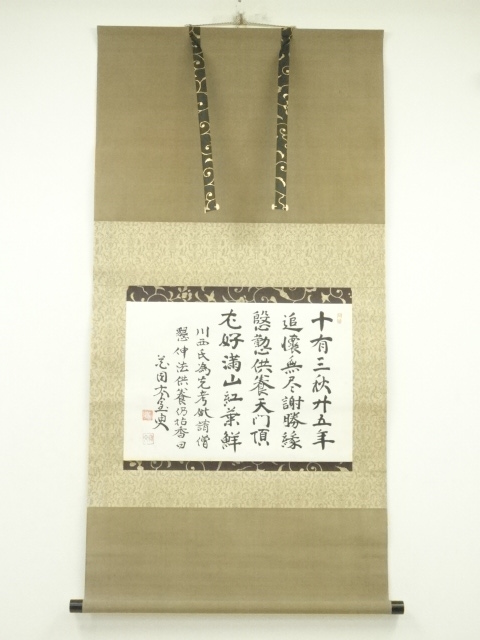 十有三秋廾五年
追懷無尽謝勝縁
慇懃供養天門頂
尤好滿山紅葉鮮
川西氏為先考敬請僧
懇伸法供養仍拈香曰